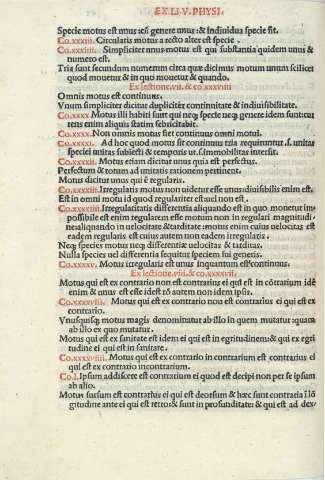 EX LI.V. PHYSI.
Specie motus est unus &indiuidua specie sit.
Co.xxxiii. Circularis motus a recto alter est specie.
Co.xxxiiii. Simpliciter unus motus est qui substantia quidem unus & numero est.
Tria sunt secundum numerum circa quæ dicimus motum unum scilicet quod mouetur & in quo mouetur & quando.
Ex lectione.vii. & co.xxxviii
Omnis motus est continuus.
Vnum simpliciter dicitur dupliciter continuitate & indiuisibilitate.
Co.xxxx. Motus illi habiti sunt qui neq; specie neq; genere idem sunt:
tens enim aliquis statim febricitabit.
Co.xxxx. Non omnis motus fiet continuus omni motui.
Co.xxxxi. Ad hoc quod motus sit continuus tria requiruntur .s. unitas
speciei unitas subiecti & temporis ut .s. immobilitas interfit.
Co.xxxxii. Motus etiam dicitur unus quia est perfectus.
Perfectum & totum ad unitatis rationem pertinent.
Motus dicitur unus qui é regularis.
Co.xxxxiii. Irregularis motus non uidetur esse unus: diuisibilis enim est.
Est in omni motu id quod regulariter est uel non est.
Co.xxxxiiii. Irregularitatis differentia aliquando est in quo monetur im
possibile est enim regularem esse motum non in regulari magnitudi
ne: aliquando in uelocitate & tarditate: motus enim cuius uelocitas est
eadem regularis est cuius autem non eadem irregularis.
Neq; species motus neq; differentiæ uelocitas & tarditas.
Nulla species uel differentia sequitur speciem sui generis.
Co.xxxxv. Motus irregularis est unus inquantum est continuus.
Ex lectione.viii. & co.xxxxvii.
Motus qui est ex contrario non est contrarius ei qui est in contrarium idé
enim & unus est esse idest ro autem non idem ipsis.
Co.xxxxviii. Motus qui est ex contrario non est contrarius ei qui est ex
contrario.
Vnusquisq; motus magis denominatur ab illo in quem mutatur quam
ab illo ex quo mutatur.
Motus qui est ex sanitate est idem ei qui est in egritudinem: & qui ex egri
tudine ei qui est in sanitate.
Co.xxxxviiii. Motus qui est ex contrario in contrarium est contrarius ei
qui est ex contrario incontrarium.
Co.l. Ipsum addiscere est contrarium ei quod est decipi non per se ipsum
ab alio.
Motus sursum est contrarius ei qui est deorsum & hæc sunt contraria ilō
gitudine ante ei qui est retro: & sunt in profunditate: & qui est ad dex-